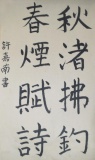 秋渚拂釣
春煙賦詩
許嘉南書